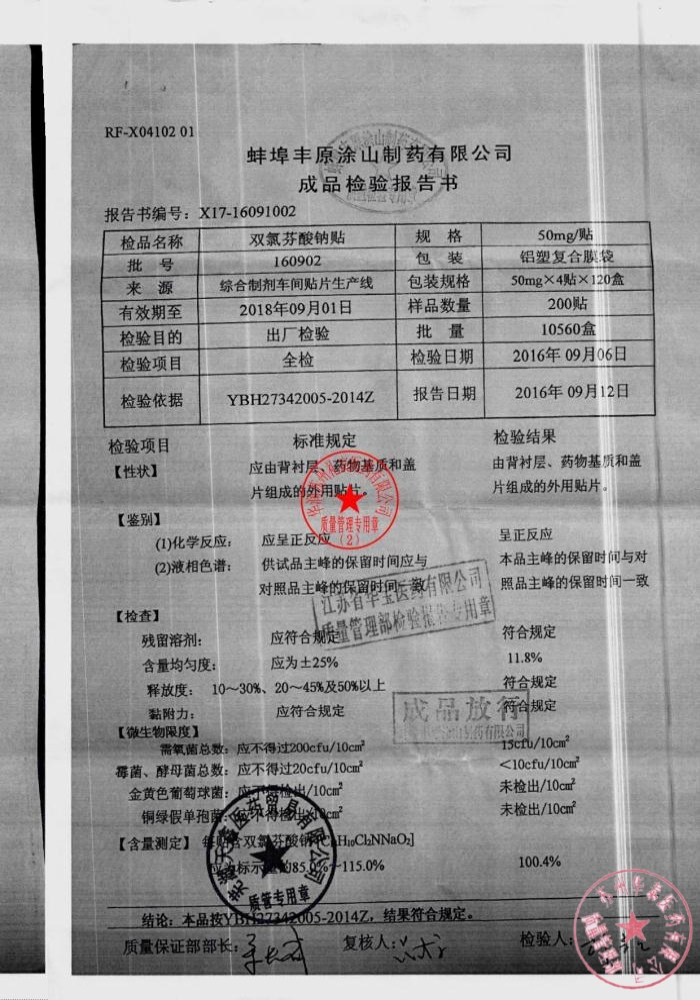 RF-X04102 01
蚌埠丰原涂山制药有限公司
成品检验报告书
报告书编号：X17-16091002
检品名称 双氯芬酸钠贴 规 格 50mg/贴
批 号 160902 包 装 铝塑复合膜袋
来 源 综合制剂车间贴片生产线 包装规格 50mg×4贴×120盒
有效期至 2018年09月01日 样品数量 200贴
检验目的 出厂检验 批 量 10560盒
检验项目 全检 检验日期 2016年 09月06日
检验依据 YBH27342005-2014Z 报告日期 2016年 09月12日
检验项目 标准规定 检验结果
【性状】 应由背衬层、药物基质和盖 由背衬层、药物基质和盖
片组成的外用贴片。 片组成的外用贴片。
【鉴别】
(1)化学反应： 应呈正反应 呈正反应
(2)液相色谱： 供试品主峰的保留时间应与 本品主峰的保留时间与对
对照品主峰的保留时间一致 照品主峰的保留时间一致
质量管理专用章
(2)
江苏省华宝医药有限公司
质量管理部检验报告专用章
【检查】
残留溶剂： 应符合规定 符合规定
含量均匀度： 应为±25% 11.8%
释放度： 10～30%、20～45%及50%以上 符合规定
黏附力： 应符合规定 符合规定
成品放行
【微生物限度】
需氧菌总数：应不得过200cfu/10cm² 15cfu/10cm²
霉菌、酵母菌总数：应不得过20cfu/10cm² <10cfu/10cm²
金黄色葡萄球菌：应不得检出/10cm² 未检出/10cm²
铜绿假单孢菌：应不得检出/10cm² 未检出/10cm²
【含量测定】 每贴含双氯芬酸钠 H₁₀Cl₂NNaO₂]
应为标示量的85.0%～115.0% 100.4%
质管专用章
结论：本品按YBH27342005-2014Z，结果符合规定。
质量保证部部长： 复核人： 检验人：